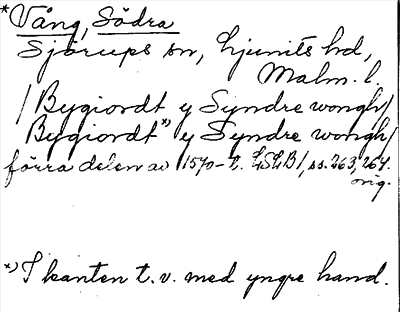 *Vång, Södra
Sjörups sn, Ljunits hd,
Malm. l.
/Bygiordt y Syndre wongh/
Bygiordt*) y Syndre wongh/
förra delen av 1570-t. LSLB/, ss. 263, 264.
orig.
*) I kanten t. v. med yngre hand.